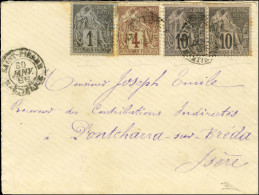 1 4 10 10
SAINT-PIERRE
JANV.
Monsieur Joseph Emile
Receveur des Contributions Indirectes
Pontcharra sur Breda
Isère